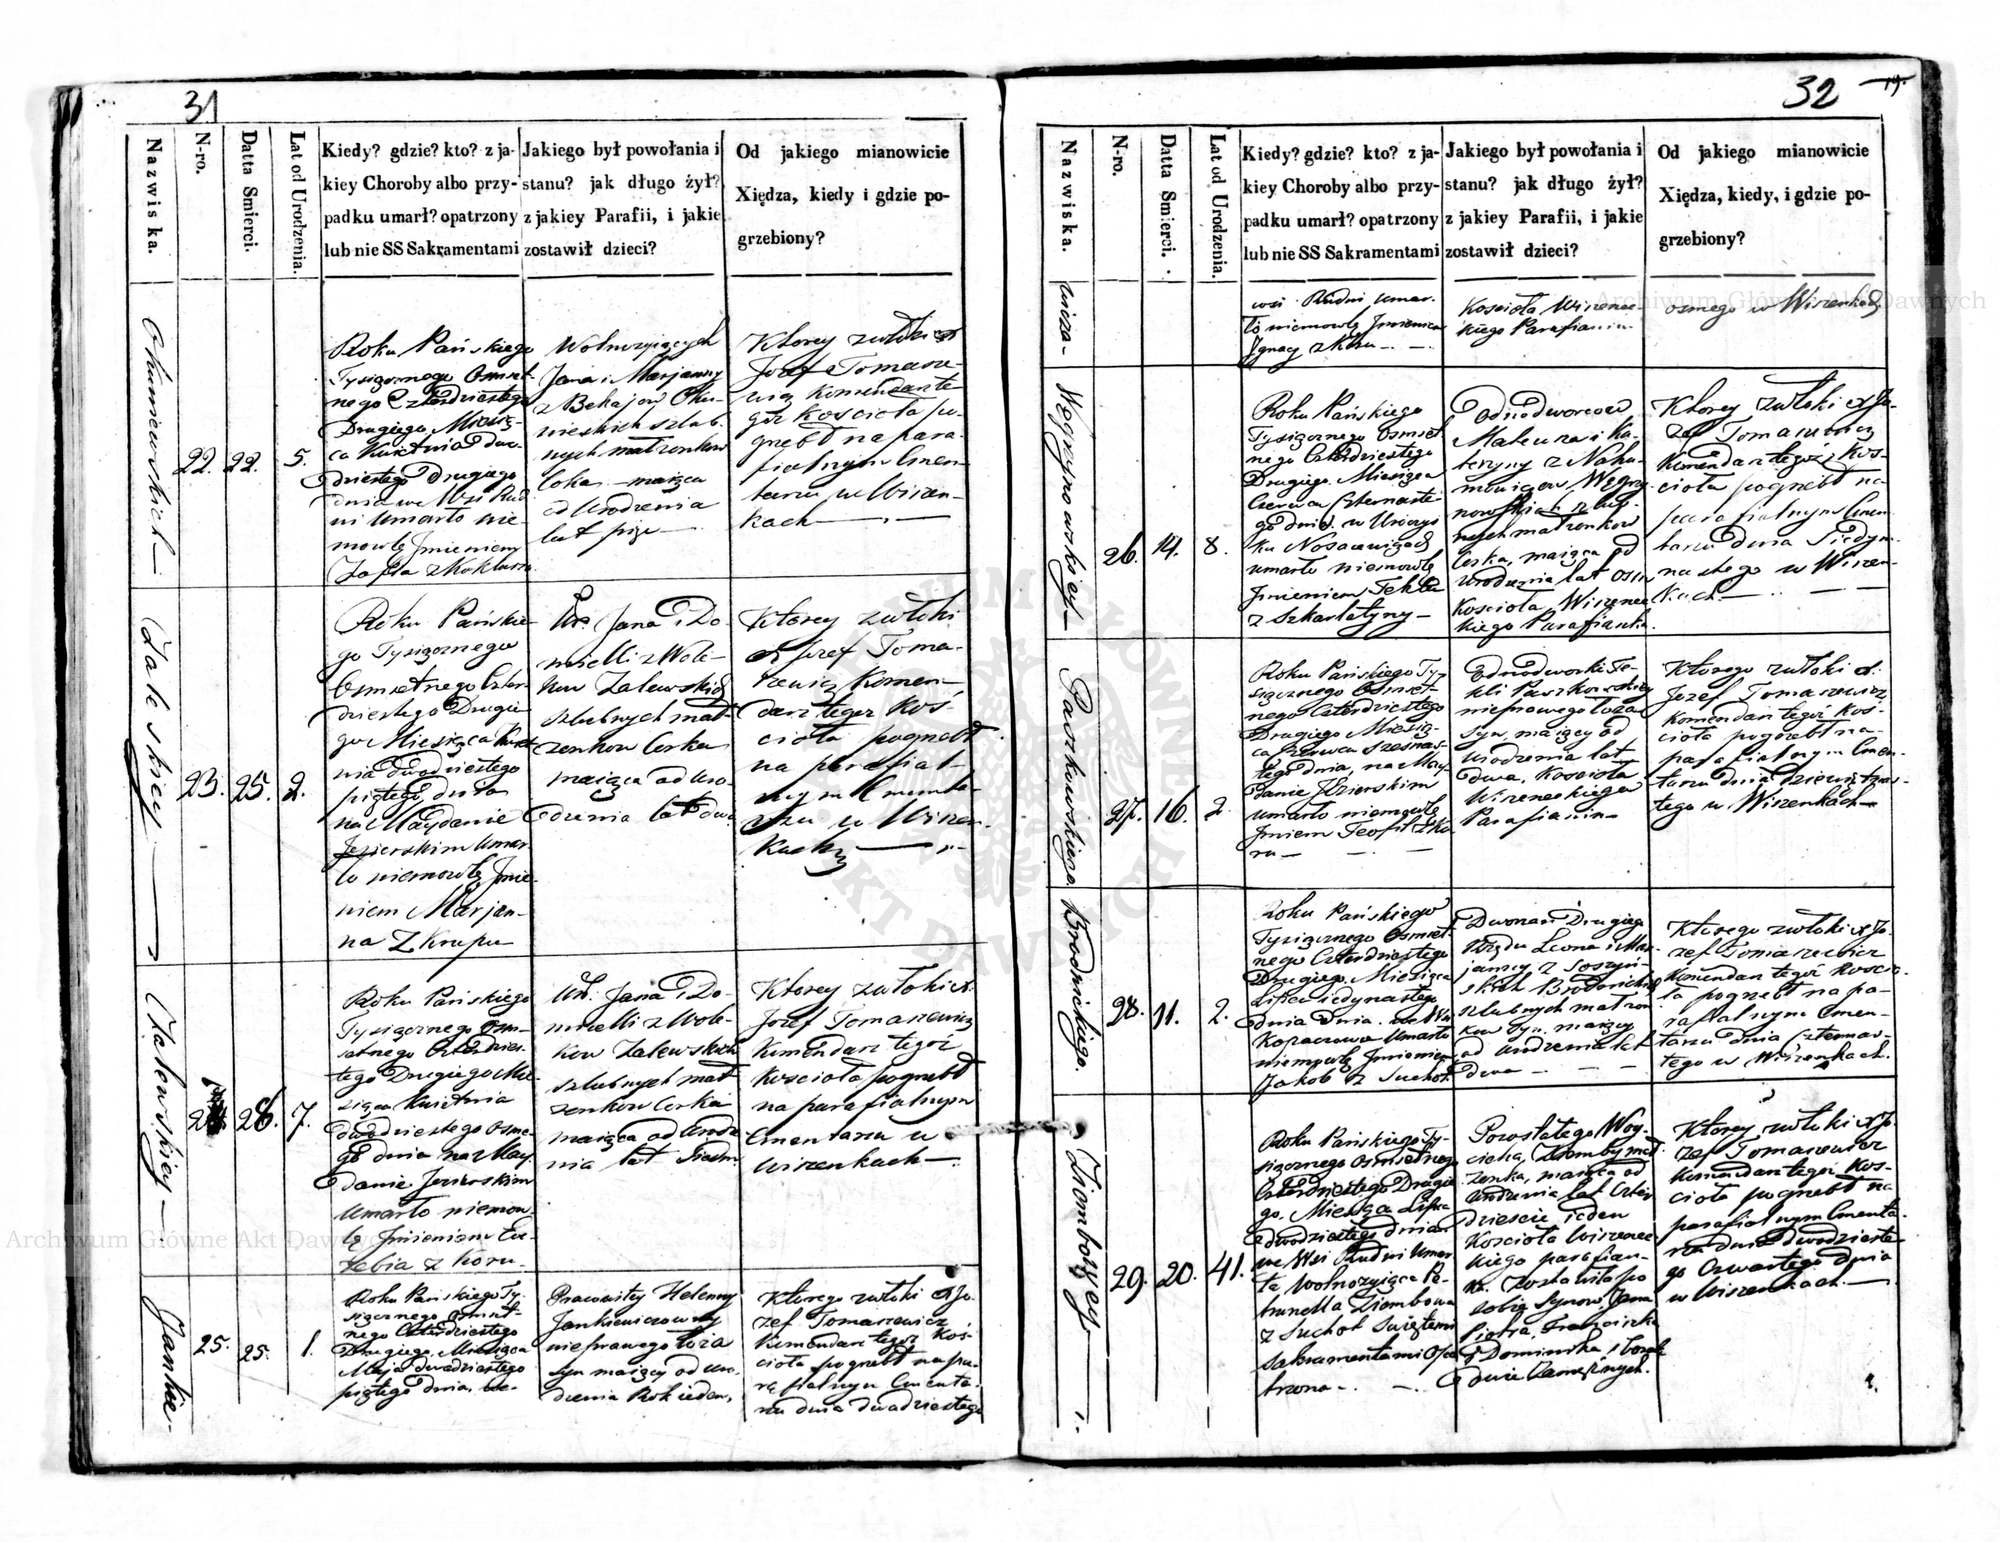 31
Nazwiska.
N-ro.
Datta Smierci.
Lat od Urodzenia.
Kiedy? gdzie? kto? z ja-
kiey Choroby albo przy-
padku umarł? opatrzony
lub nie SS Sakramentami
Jakiego był powołania i
stanu? jak długo żył?
z jakiey Parafii, i jakie
zostawił dzieci?
Od jakiego mianowicie
Xiędza, kiedy i gdzie po-
grzebiony?
22.
22.
5.
Roku Pańskiego
Tysiącznego Osmset-
nego Czterdziestego
Drugiego Miesią-
ca Kwietnia dwu-
dziestego Drugiego
dnia we Wsi Rud
ni umarło nie
mowlę Jmieniem
Zofia z Kokluszu
Wolnożyjących
Jana i Marjanny
z
szlub-
nych małżonkow
Corka maiąca
od Urodzenia
lat pięć
Ktorey zwłoki X
Jozef Tomasze-
wicz Komendarz te
goż Kościoła po-
grzebł na para-
fialnym Cmen-
tarzu w Wiszen-
kach
Zaleskiey
23.
25.
2.
Roku Pańskie-
go Tysiącznego
Osmsetnego Czter-
dziestego Drugie
go Miesiąca Kwiet
nia dwudziestego
piątego dnia
na Maydanie
Jezierskim Umar-
ło niemowlę Jmie-
niem Marjan-
na Z Krupu
Ur. Jana i Do-
micelli z Wole-
kow Zalewskich
szlubnych mał-
żonkow Corka
maiąca od Uro-
dzenia lat dwa
Ktorey zwłoki
X Jozef Toma-
szewicz Komen-
darz tegoż Koś-
cioła pogrzebł
na parafial-
nym Cmenta-
rzu w Wiszen-
kach
Zalewskiey
28.
7.
Roku Pańskiego
Tysiącznego Osm-
setnego Czterdzies-
tego Drugiego Mie-
siąca Kwietnia
dwudziestego osme-
go dnia na May-
danie Jezierskim
Umarło niemow-
lę Jmieniem Eu-
zebia z Koru
Ur. Jana i Do-
micelli z Wole-
kow Zalewskich
szlubnych mał
żonkow Corka
maiąca od Urodze-
nia lat Siedm.
Ktorey zwłoki X.
Jozef Tomaszewicz
Komendarz tegoż
Kościoła pogrzebł
na parafialnym
Cmentarzu w
Wiszenkach
Jankie-
25.
25.
1.
Roku Pańskiego Ty-
siącznego Osmset-
nego Czterdziestego
Drugiego, Miesiąca
Maja dwudziestego
piątego dnia, we
Pracowitey Helenny
Jankiewiczowny
nieprawego łoża
Syn maiący od Uro-
dzenia Rok ieden,
Ktorego zwłoki X Jo-
zef Tomaszewicz
Komendarz tegoż Koś-
cioła pogrzebł na pa-
rafialnym Cmenta-
rzu dnia dwudziestego
32
19.
Nazwiska.
N-ro.
Datta Smierci.
Lat od Urodzenia.
Kiedy? gdzie? kto? z ja-
kiey Choroby albo przy-
padku umarł? opatrzony
lub nie SS Sakramentami
Jakiego był powołania i
stanu? jak długo żył?
z jakiey Parafii, i jakie
zostawił dzieci?
Od jakiego mianowicie
Xiędza, kiedy, i gdzie po-
grzebiony?
wsi Rudni umar-
ło niemowlę Jmieniem
Ignacy z Koru
Kościoła Wiszenec-
kiego Parafianin
osmego w Wiszenkach
26.
14.
8.
Roku Pańskiego
Tysiącznego Osmset
nego Czterdziestego
Drugiego, Miesiąca
Czerwca Czternaste
go dnia w Uroczys
ku
umarło niemowlę
Jmieniem Tekla
z Szkarlatyny
Odnodworcow
Mateusza i Ka-
terzyny z
nych małżonkow
Corka, maiąca od
Urodzenia lat osm
Kościoła Wiszenec
kiego Parafianka.
Ktorey zwłoki X Jo-
zef Tomaszewicz
Komendarz tegoż Koś-
cioła pogrzebł na
parafialnym Cmen-
tarzu dnia Siedym-
nastego w Wiszen-
kach
Paszkowskiego.
27.
16.
2.
Roku Pańskiego Ty-
siącznego Osmset-
nego Czterdziestego
Drugiego Miesią-
ca Czerwca szesnas-
tego dnia, na May-
danie Jezierskim
umarło niemowlę
Jmiem Teofil z Ko-
ru
Odnodworki Te-
kli Paszkowskiey
nieprawego łoża
Syn, maiący od
urodzenia lat
dwa, Kościoła
Wiszeneckiego
Parafianin
Ktorego zwłoki X.
Jozef Tomaszewicz
Komendarz tegoż Koś-
cioła pogrzebł na
parafialnym Cmen-
tarzu dnia dziewiętnas-
tego w Wiszenkach
Brodnickiego.
28.
11.
2.
Roku Pańskiego
Tysiącznego Osmset-
nego Czterdziestego
Drugiego, Miesiąca
Lipca iedynastego
dnia we Wsi
umarło
niemowlę Jmieniem
Jakob z Suchot
Dworzan Drugiego
Rzędu Leona i Mar-
janny z
szlubnych małżon
kow Syn, maiący
od urodzenia lat
dwa
Ktorego zwłoki X Jo-
zef Tomaszewicz
Komendarz tegoż Koscio-
ła pogrzebł na pa-
rafialnym Cmen-
tarzu dnia Czternas-
tego w Wiszenkach.
Ziombowey
29.
20.
41.
Roku Pańskiego Ty-
siącznego Osmsetnego
Czterdziestego Drugie
go, Miesiąca Lipca
dwudziestego dnia
we Wsi Rudni Umar
ła, Wolnożyiąca Pe-
trunella Ziombowa
z Suchot Swiętemi
Sakramentami Opa
trzona
Pozostałego Woy-
ciecha, Ziomby mał
żonka, maiąca od
Urodzenia lat Czter
dzieście ieden
Kościoła Wiszenec
kiego parafian-
ka. Zostawiła po
sobie Synow, Jana
Piotra, Franciszka
i Dominika, i Corek
dwie Zamężnych.
Ktorey zwłoki X Jo-
zef Tomaszewicz
Komendarz tegoż Koś-
cioła pogrzebł na
parafialnym Cmenta-
rzu dnia dwudzieste
go Czwartego dnia
w Wiszenkach
Archiwum Główne Akt Dawnych
Archiwum Główne Akt Dawnych